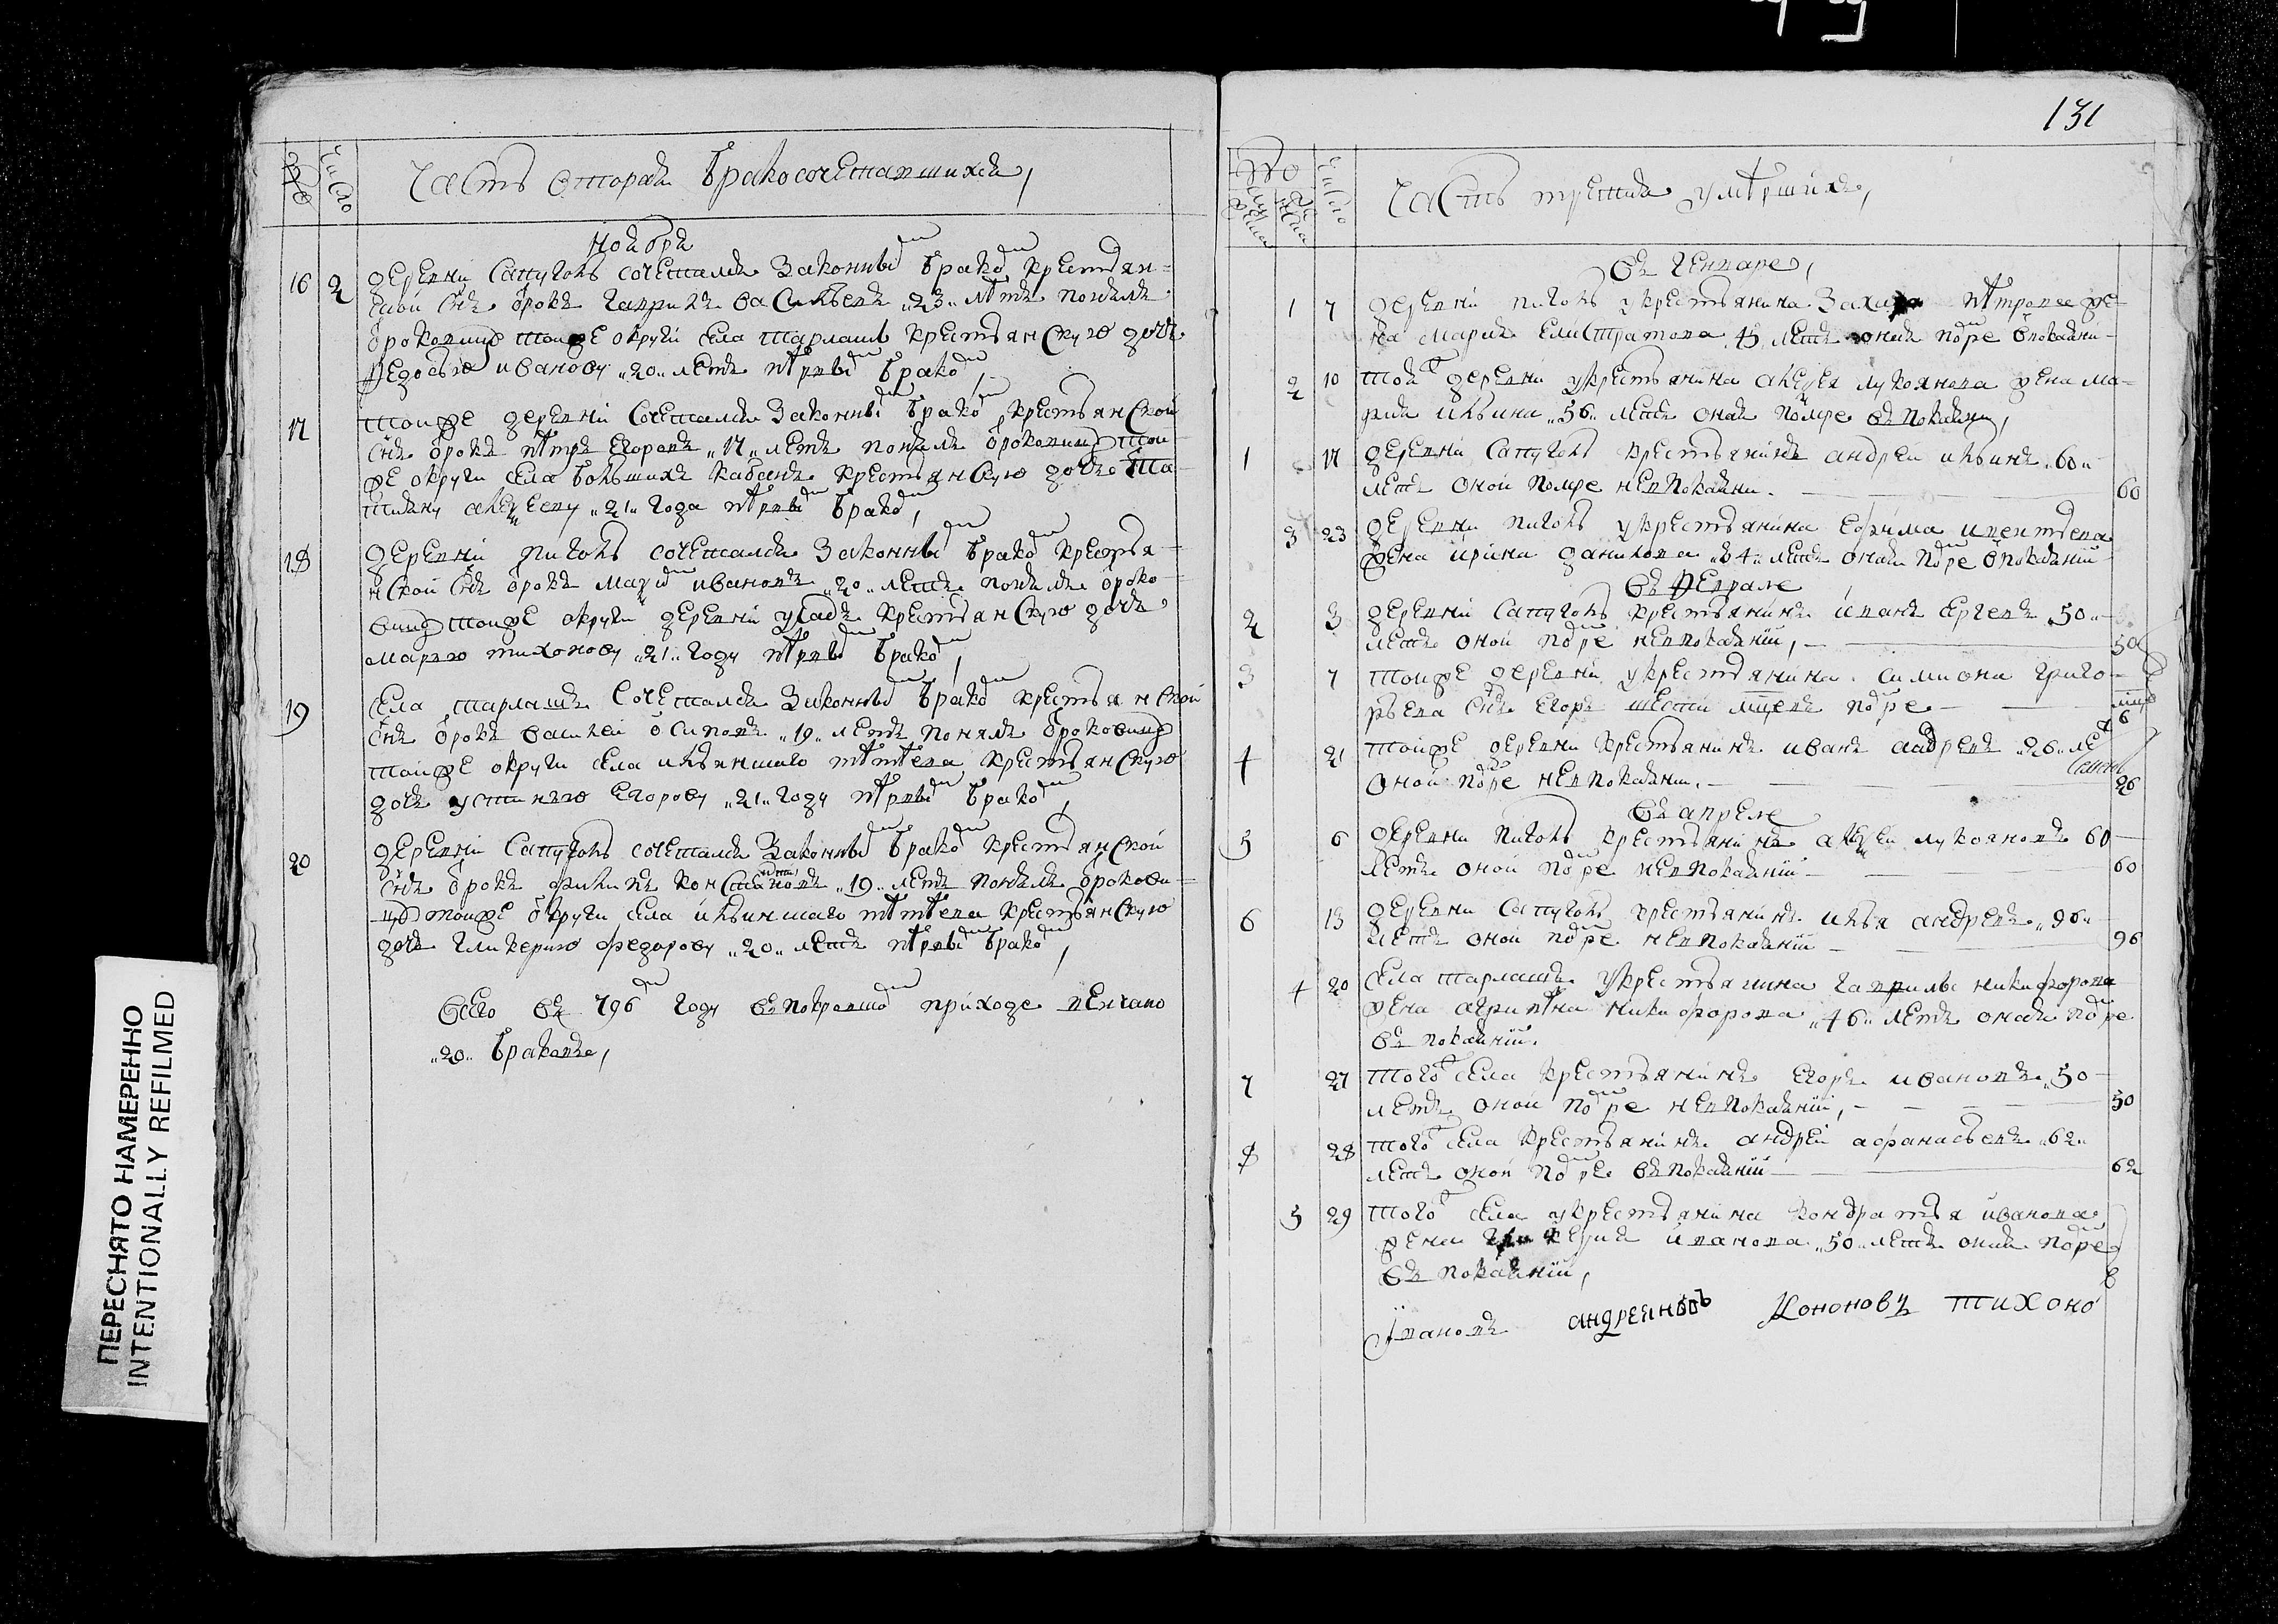 131
№ Число Часть вторая бракосочетавшихся,
Ноября
16 2 деревни Сапуголь сочетался законны брако крестьян-
ской снъ отрокъ Гаврилъ васильевъ „23„ летъ понялъ
отроковицу тоиже округи села тарлашъ крестьянскую дочь
Федосью иванову „20„ летъ первы брако,
17 тоиже деревни сочетался законны брако крестьянской
снъ отрокъ петръ Егоровъ „17„ летъ понялъ отроковицу тои
же округи села большихъ кабанъ крестьянскую дочь Та-
тияну алексееву „21„ года первы брако,
18 деревни пиголь сочетался законны брако крестья-
нской снъ отрокъ ивановъ „20„ летъ понялъ отроко-
вицу тоиже округи деревни крестьянскую дочь
марью тихонову „21„ году первы брако,
19 села тарлашъ сочетался законны брако крестьянской
снъ отрокъ василеи осиповъ „19„ летъ понялъ отроковицу
тоиже округи села крестьянскую
дочь устинью Егорову „21„ году первы брако,
20 деревни Сапуголь сочетался законны брако крестьянской
снъ отрокъ филипъ „19„ летъ понялъ отрокови-
цу тоиже округи села крестьянскую
дочь гликерию федорову „20„ летъ первы брако,
Всего въ 796 году въ покровшо приходе венчано
„20„ браковъ,
№ Число Часть третия умерших,
Въ Генваре,
1 7 деревни пиголь укрестьянина Петрова же-
на Мария Елистратова 45 летъ оная поре впокаяни-
2 10 той деревни укрестьянина алексея лукоянова жена ма-
рия ильина „56„ летъ оная помре въ покаяни,
1 17 деревни Сапуголь крестьянинъ андреи ильинъ „60„
летъ оной помре невпокаяни. 60
3 23 деревни пиголь укрестьянина Ефима
жена ирина данилова летъ оная поре впокаянии
Въ Феврале
2 3 деревни Сапуголь крестьянинъ иванъ „50„
летъ оной поре невпокаянии, 50
3 7 тоиже деревни укрестьянина симиона григо-
рьева снъ Егоръ шести мцевъ поре мцо 6
4 21 тоиже деревни крестьянинъ иванъ „26„ ле
оной поре невпокаянии. 26
Въ апреле
5 6 деревни пиголь крестьянинъ алексеи лукояновъ 60
летъ оной поре невпокаянии 60
6 13 деревни Сапуголь крестьянинъ илья андревъ „96„
летъ оной поре невпокаянии 96
4 20 села тарлашъ укрестьянина гаврилы никифорова
жена агрипена никифорова „46„ летъ оная поре
въ покаянии.
7 27 того села крестьянинъ Егоръ ивановъ „50
летъ оной поре невпокаянии, 50
8 28 того села крестьянинъ андреи афанасьевъ „62„
летъ оной поре въ покаянии 62
5 29 того села укрестьянина кондратья иванова
жена иванова „50„ летъ оная поре
въ покаянии,
Ивановъ Кононовъ тихоно
ПЕРЕСНЯТО НАМЕРЕННО
INTENTIONALLY REFILMED